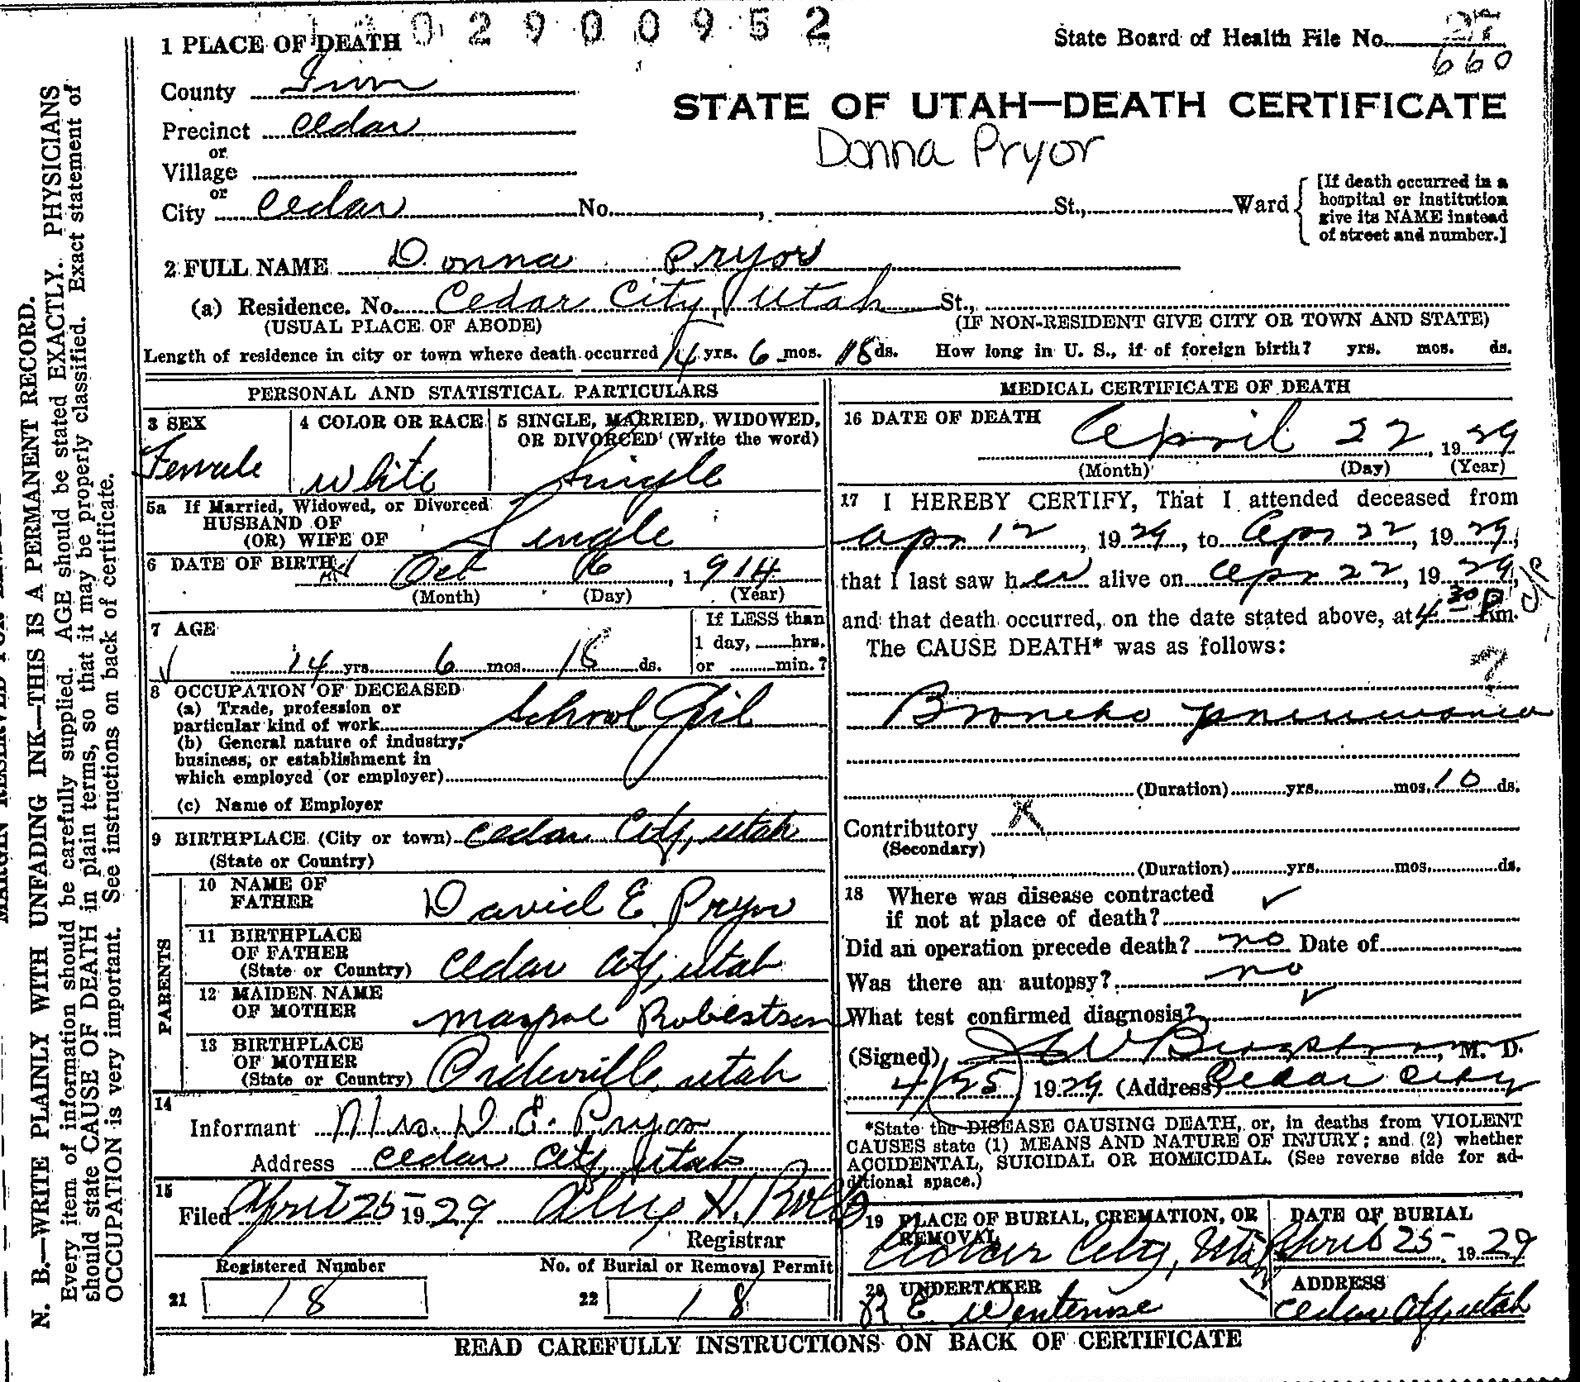 02900952
1 PLACE OF DEATH
State Board of Health File No. 27
660
County Iron
STATE OF UTAH—DEATH CERTIFICATE
Precinct Cedar
Donna Pryor
or
Village
or
City Cedar No. , St., Ward
[If death occurred in a
hospital or institution
give its NAME instead
of street and number.]
2 FULL NAME Donna Pryor
(a) Residence. No. Cedar City, Utah St.,
(USUAL PLACE OF ABODE) (IF NON-RESIDENT GIVE CITY OR TOWN AND STATE)
Length of residence in city or town where death occurred 14 yrs. 6 mos. 18 ds. How long in U. S., if of foreign birth? yrs. mos. ds.
PERSONAL AND STATISTICAL PARTICULARS
3 SEX
Female
4 COLOR OR RACE
White
5 SINGLE, MARRIED, WIDOWED,
OR DIVORCED (Write the word)
Single
5a If Married, Widowed, or Divorced
HUSBAND OF
(OR) WIFE OF Single
6 DATE OF BIRTH Oct 6, 1914
(Month) (Day) (Year)
7 AGE
14 yrs 6 mos 18 ds.
If LESS than
1 day, hrs.
or min.?
8 OCCUPATION OF DECEASED
(a) Trade, profession or
particular kind of work School Girl
(b) General nature of industry,
business, or establishment in
which employed (or employer)
(c) Name of Employer
9 BIRTHPLACE (City or town) Cedar City, Utah
(State or Country)
PARENTS
10 NAME OF
FATHER David E Pryor
11 BIRTHPLACE
OF FATHER
(State or Country) Cedar City, Utah
12 MAIDEN NAME
OF MOTHER Robertson
13 BIRTHPLACE
OF MOTHER
(State or Country) Orderville, Utah
14
Informant Mrs. D. E. Pryor
Address Cedar City, Utah
15
Filed April 25 1929
Registrar
Registered Number
21 18
No. of Burial or Removal Permit
22 18
MEDICAL CERTIFICATE OF DEATH
16 DATE OF DEATH
April 22, 1929
(Month) (Day) (Year)
17 I HEREBY CERTIFY, That I attended deceased from
Apr 12, 1929, to Apr 22, 1929,
that I last saw her alive on Apr 22, 1929,
and that death occurred, on the date stated above, at 4 30 P m.
The CAUSE DEATH* was as follows:
?
Broncho pneumonia
(Duration) yrs. mos. 10 ds.
Contributory X
(Secondary)
(Duration) yrs. mos. ds.
18 Where was disease contracted
if not at place of death?
Did an operation precede death? no Date of
Was there an autopsy? no
What test confirmed diagnosis?
(Signed) , M. D.
4/25, 1929 (Address) Cedar City
*State the DISEASE CAUSING DEATH, or, in deaths from VIOLENT
CAUSES state (1) MEANS AND NATURE OF INJURY; and (2) whether
ACCIDENTAL, SUICIDAL OR HOMICIDAL. (See reverse side for ad-
ditional space.)
19 PLACE OF BURIAL, CREMATION, OR
REMOVAL
Cedar City, Utah
DATE OF BURIAL
April 25 1929
20 UNDERTAKER
ADDRESS
Cedar City, Utah
READ CAREFULLY INSTRUCTIONS ON BACK OF CERTIFICATE
N. B.—WRITE PLAINLY WITH UNFADING INK—THIS IS A PERMANENT RECORD.
Every item of information should be carefully supplied. AGE should be stated EXACTLY. PHYSICIANS
should state CAUSE OF DEATH in plain terms, so that it may be properly classified. Exact statement of
OCCUPATION is very important. See instructions on back of certificate.